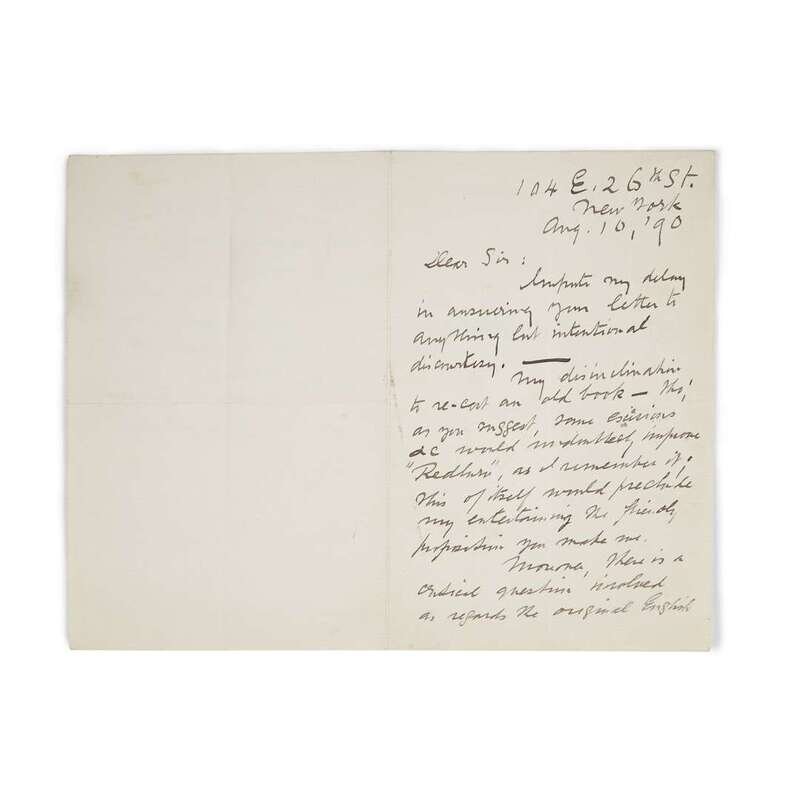 104 E. 26th St.
New York
Aug. 10, '90
Dear Sir:
Impute my delay
in answering your letter to
anything but intentional
discourtesy. —
My disinclination
to re-cast an old book — tho',
as you suggest, some excisions
&c would undoubtedly improve
"Redburn", as I remember it;
this of itself would preclude
my entertaining the friendly
proposition you make me.
Moreover, there is a
critical question involved
as regards the original English